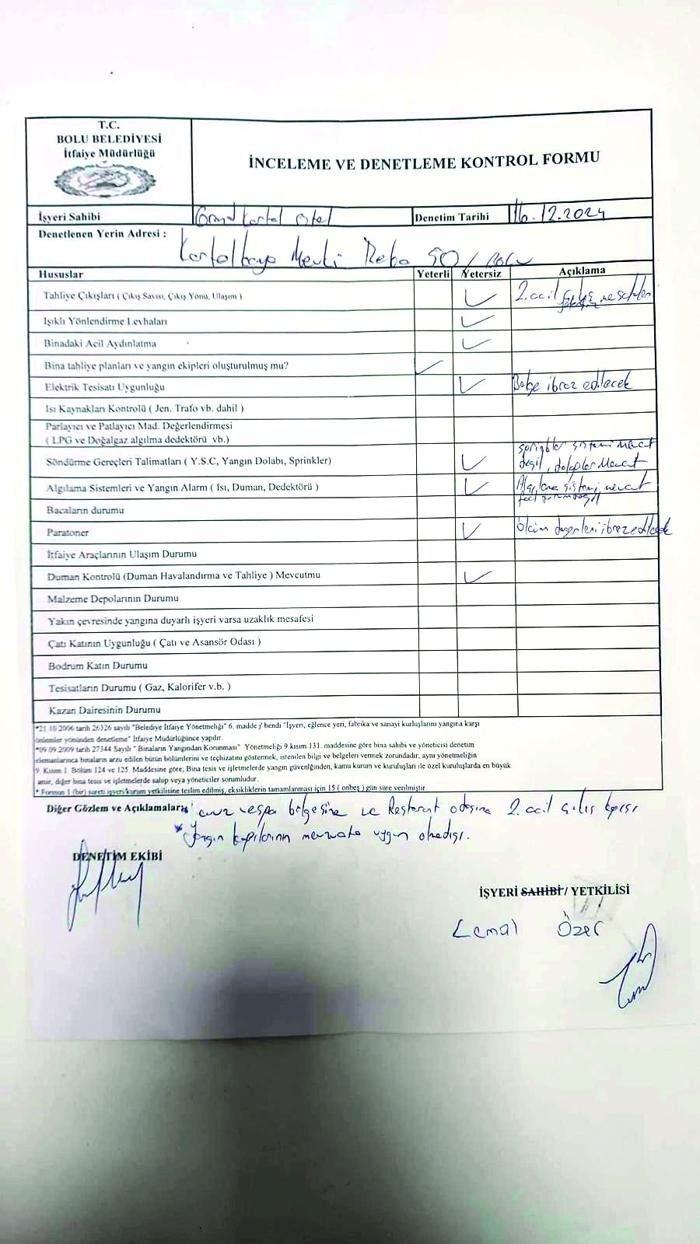 T.C.
BOLU BELEDİYESİ
İtfaiye Müdürlüğü
İNCELEME VE DENETLEME KONTROL FORMU
İşyeri Sahibi Grand Kartal Otel Denetim Tarihi 16.12.2024
Denetlenen Yerin Adresi : Kartalkaya Mevki
Hususlar Yeterli Yetersiz Açıklama
Tahliye Çıkışları ( Çıkış Sayısı, Çıkış Yönü, Ulaşım ) 2. acil çıkış
Işıklı Yönlendirme Levhaları
Binadaki Acil Aydınlatma
Bina tahliye planları ve yangın ekipleri oluşturulmuş mu?
Elektrik Tesisatı Uygunluğu Belge ibraz edilecek
Isı Kaynakları Kontrolü ( Jen. Trafo vb. dahil )
Parlayıcı ve Patlayıcı Mad. Değerlendirmesi
( LPG ve Doğalgaz algılma dedektörü vb.)
Söndürme Gereçleri Talimatları ( Y.S.C, Yangın Dolabı, Sprinkler) sistemi mevcut
değil, dolaplar Mevcut
Algılama Sistemleri ve Yangın Alarm ( Isı, Duman, Dedektörü ) Algılama sistemi mevcut
Bacaların durumu
Paratoner ölçüm değerleri ibraz edilecek
İtfaiye Araçlarının Ulaşım Durumu
Duman Kontrolü (Duman Havalandırma ve Tahliye ) Mevcutmu
Malzeme Depolarının Durumu
Yakın çevresinde yangına duyarlı işyeri varsa uzaklık mesafesi
Çatı Katının Uygunluğu ( Çatı ve Asansör Odası )
Bodrum Katın Durumu
Tesisatların Durumu ( Gaz, Kalorifer v.b. )
Kazan Dairesinin Durumu
*21 10 2006 tarih 26326 sayılı "Belediye İtfaiye Yönetmeliği" 6. madde j bendi "İşyeri, eğlence yeri, fabrika ve sanayi kuruluşlarını yangına karşı
önlemler yönünden denetleme" İtfaiye Müdürlüğünce yapılır.
*09 09 2009 tarih 27344 Sayılı " Binaların Yangından Korunması" Yönetmeliği 9 kısım 131. maddesine göre bina sahibi ve yöneticisi denetim
elemanlarınca binaların arzu edilen bütün bölümlerini ve teçhizatını göstermek, istenilen bilgi ve belgeleri vermek zorundadır, aynı yönetmeliğin
9. Kısım 1. Bölüm 124 ve 125. Maddesine göre; Bina tesis ve işletmelerde yangın güvenliğinden, kamu kurum ve kuruluşları ile özel kuruluşlarda en büyük
amir, diğer bina tesis ve işletmelerde sahip veya yöneticiler sorumludur.
* Formun 1 (bir) sureti işyeri/kurum yetkilisine teslim edilmiş, eksikliklerin tamamlanması için 15 ( onbeş ) gün süre verilmiştir.
Diğer Gözlem ve Açıklamalar: ve Restorant 2. acil çıkış kapısı
* Yangın kapılarının mevzuata uygun olmadığı.
DENETİM EKİBİ
İŞYERİ SAHİBİ / YETKİLİSİ
Cemal Özer